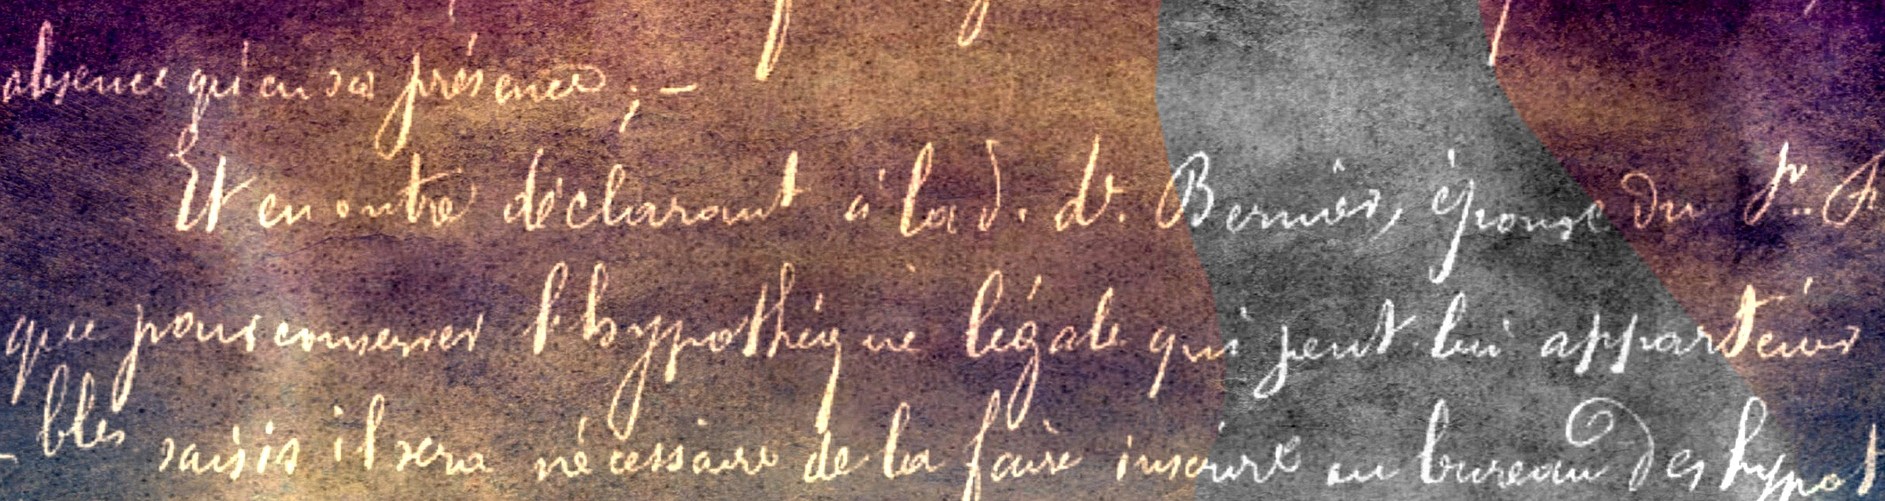 absence qu'en sa présence ; —
Et en outre déclarant à la d. de. Bernier, épouse du Sr.
que pour conserver l'hypothèque légale qui peut lui appartenir
bles saisis il sera nécessaire de la faire inscrire au bureau des hypot